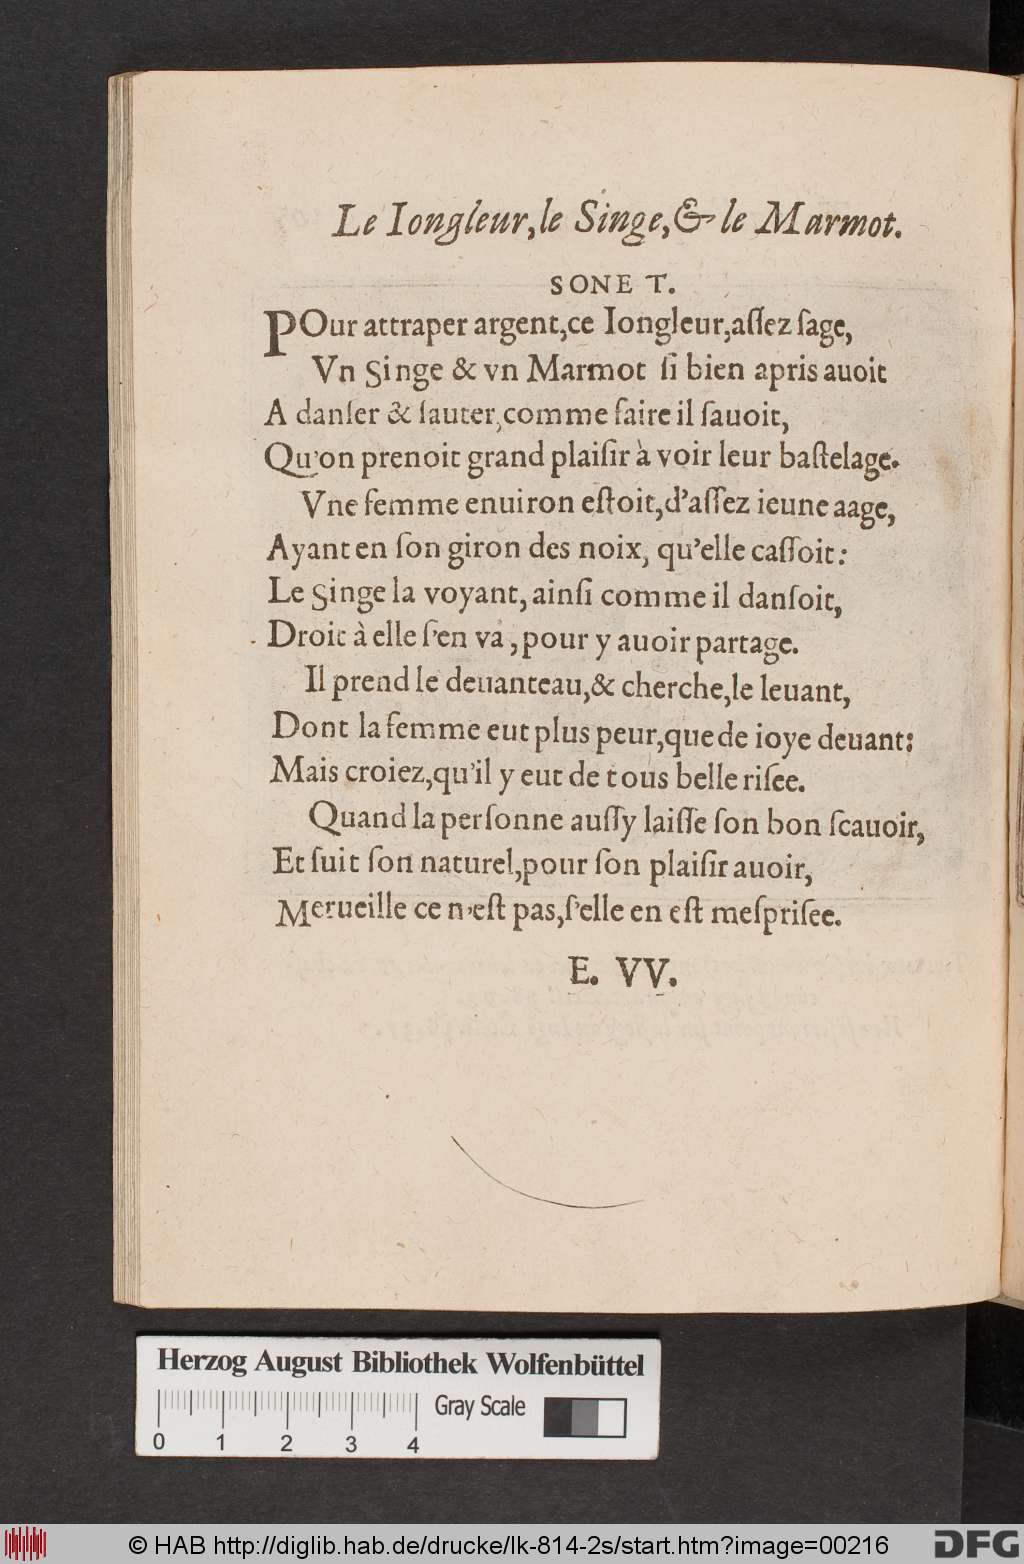 Le Iongleur, le Singe, & le Marmot.
SONET.
POur attraper argent, ce Iongleur, aſſez ſage,
Vn Singe & vn Marmot ſi bien apris auoit
A danſer & ſauter, comme faire il ſauoit,
Qu'on prenoit grand plaiſir à voir leur baſtelage.
Vne femme enuiron eſtoit, d'aſſez ieune aage,
Ayant en ſon giron des noix, qu'elle caſſoit:
Le Singe la voyant, ainſi comme il danſoit,
Droit à elle ſ'en va, pour y auoir partage.
Il prend le deuanteau, & cherche, le leuant,
Dont la femme eut plus peur, que de ioye deuant:
Mais croiez, qu'il y eut de tous belle riſee.
Quand la perſonne auſſy laiſſe ſon bon ſcauoir,
Et ſuit ſon naturel, pour ſon plaiſir auoir,
Merueille ce n'eſt pas, ſ'elle en eſt meſpriſee.
E. VV.
Herzog August Bibliothek Wolfenbüttel
Gray Scale
0 1 2 3 4
© HAB http://diglib.hab.de/drucke/lk-814-2s/start.htm?image=00216
DFG